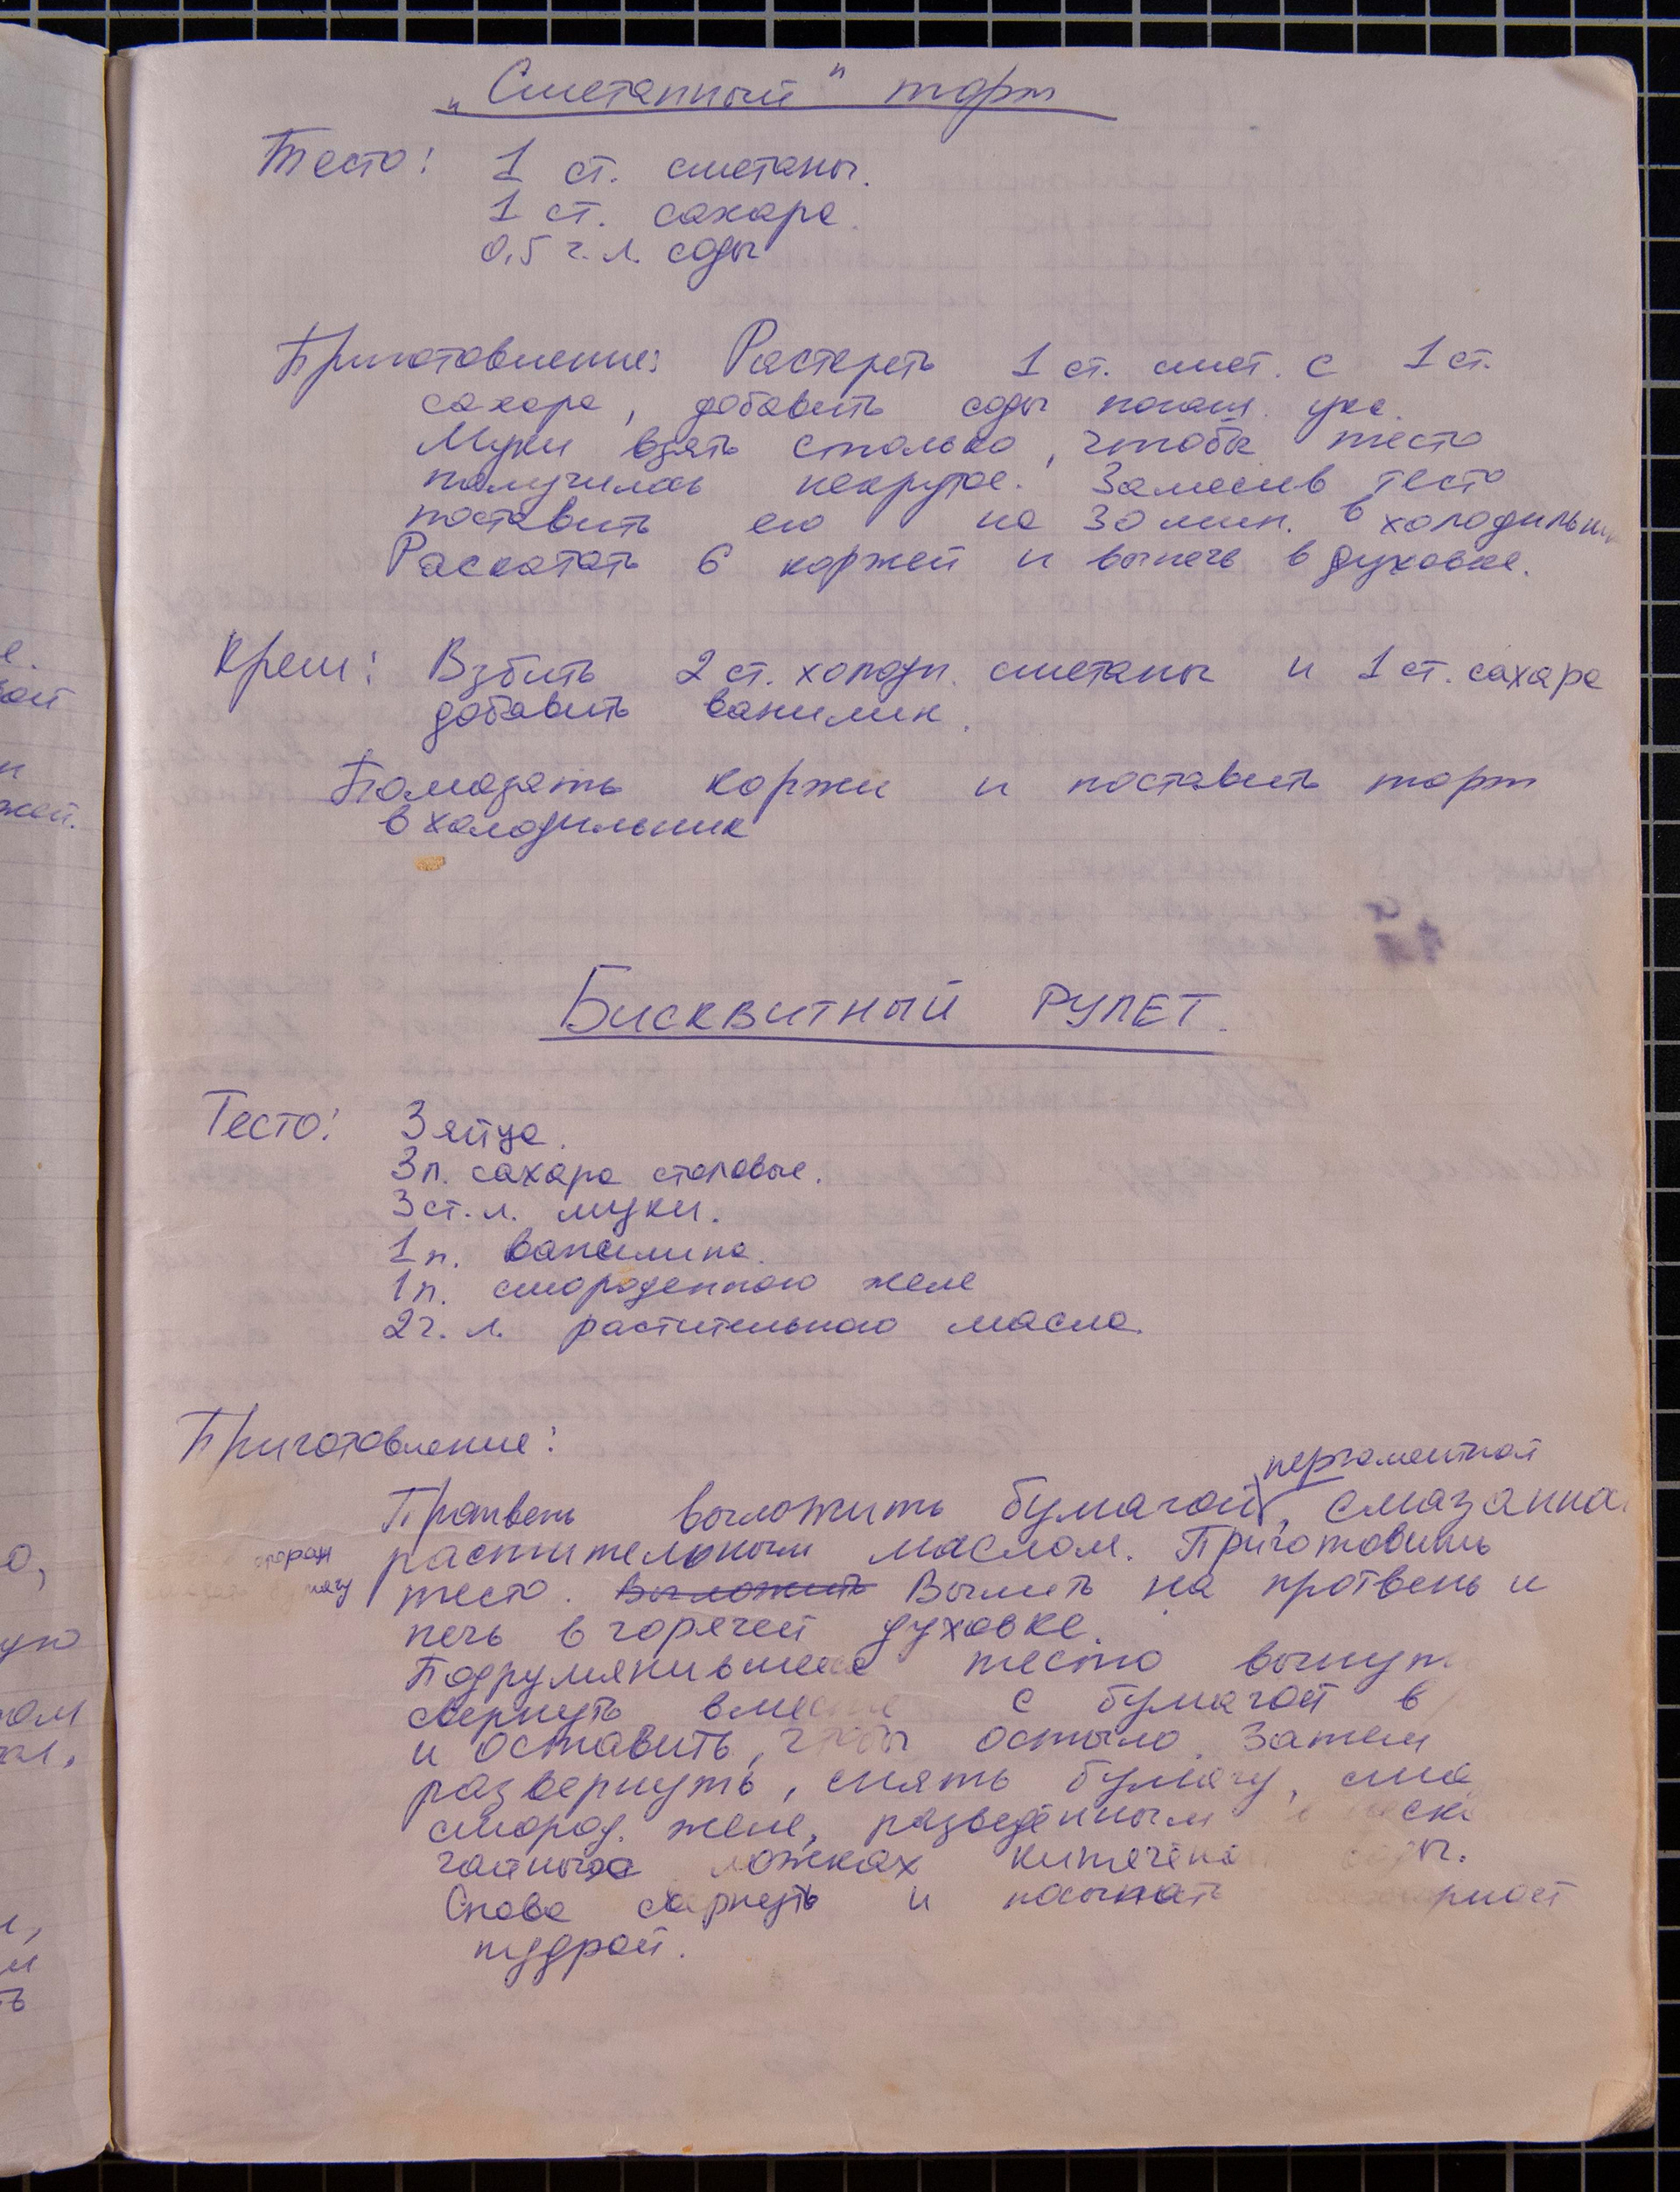 „Сметанный" торт
Тесто: 1 ст. сметаны.
1 ст. сахара.
0,5 ч. л. соды
Приготовление: Растереть 1 ст. смет. с 1 ст.
сахара, добавить соды погаш. укс.
Муки взять столько, чтобы тесто
получилось некрутое. Замесив тесто
поставить его на 30 мин. в холодильник
Раскатать 6 коржей и выпечь в духовке.
Крем: Взбить 2 ст. холодн. сметаны и 1 ст. сахара
добавить ванилин.
Помазать коржи и поставить торт
в холодильник
Бисквитный РУЛЕТ.
Тесто: 3 яйца.
3 л. сахара столовые.
3 ст. л. муки.
1 п. ванилина.
1 п. смороденного желе
2 ч. л. растительного масла.
Приготовление:
пергаментной
Протвень выложить бумагой, смазанна
растительным маслом. Приготовить
тесто. Выложить Вылить на протвень и
печь в горячей духовке.
Подрумянившееся тесто вынуть
свернуть вместе с бумагой в
и оставить, чтобы остыло. Затем
развернуть, снять бумагу,
смород. желе, разведённым
чайных ложках кипячёной воды.
Снова свернуть и посыпать
пудрой.